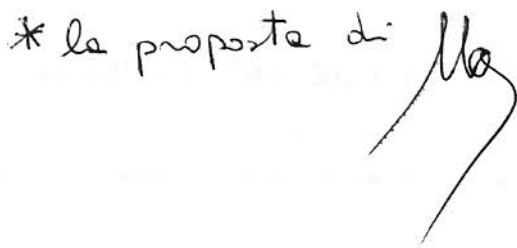 * la proposta di